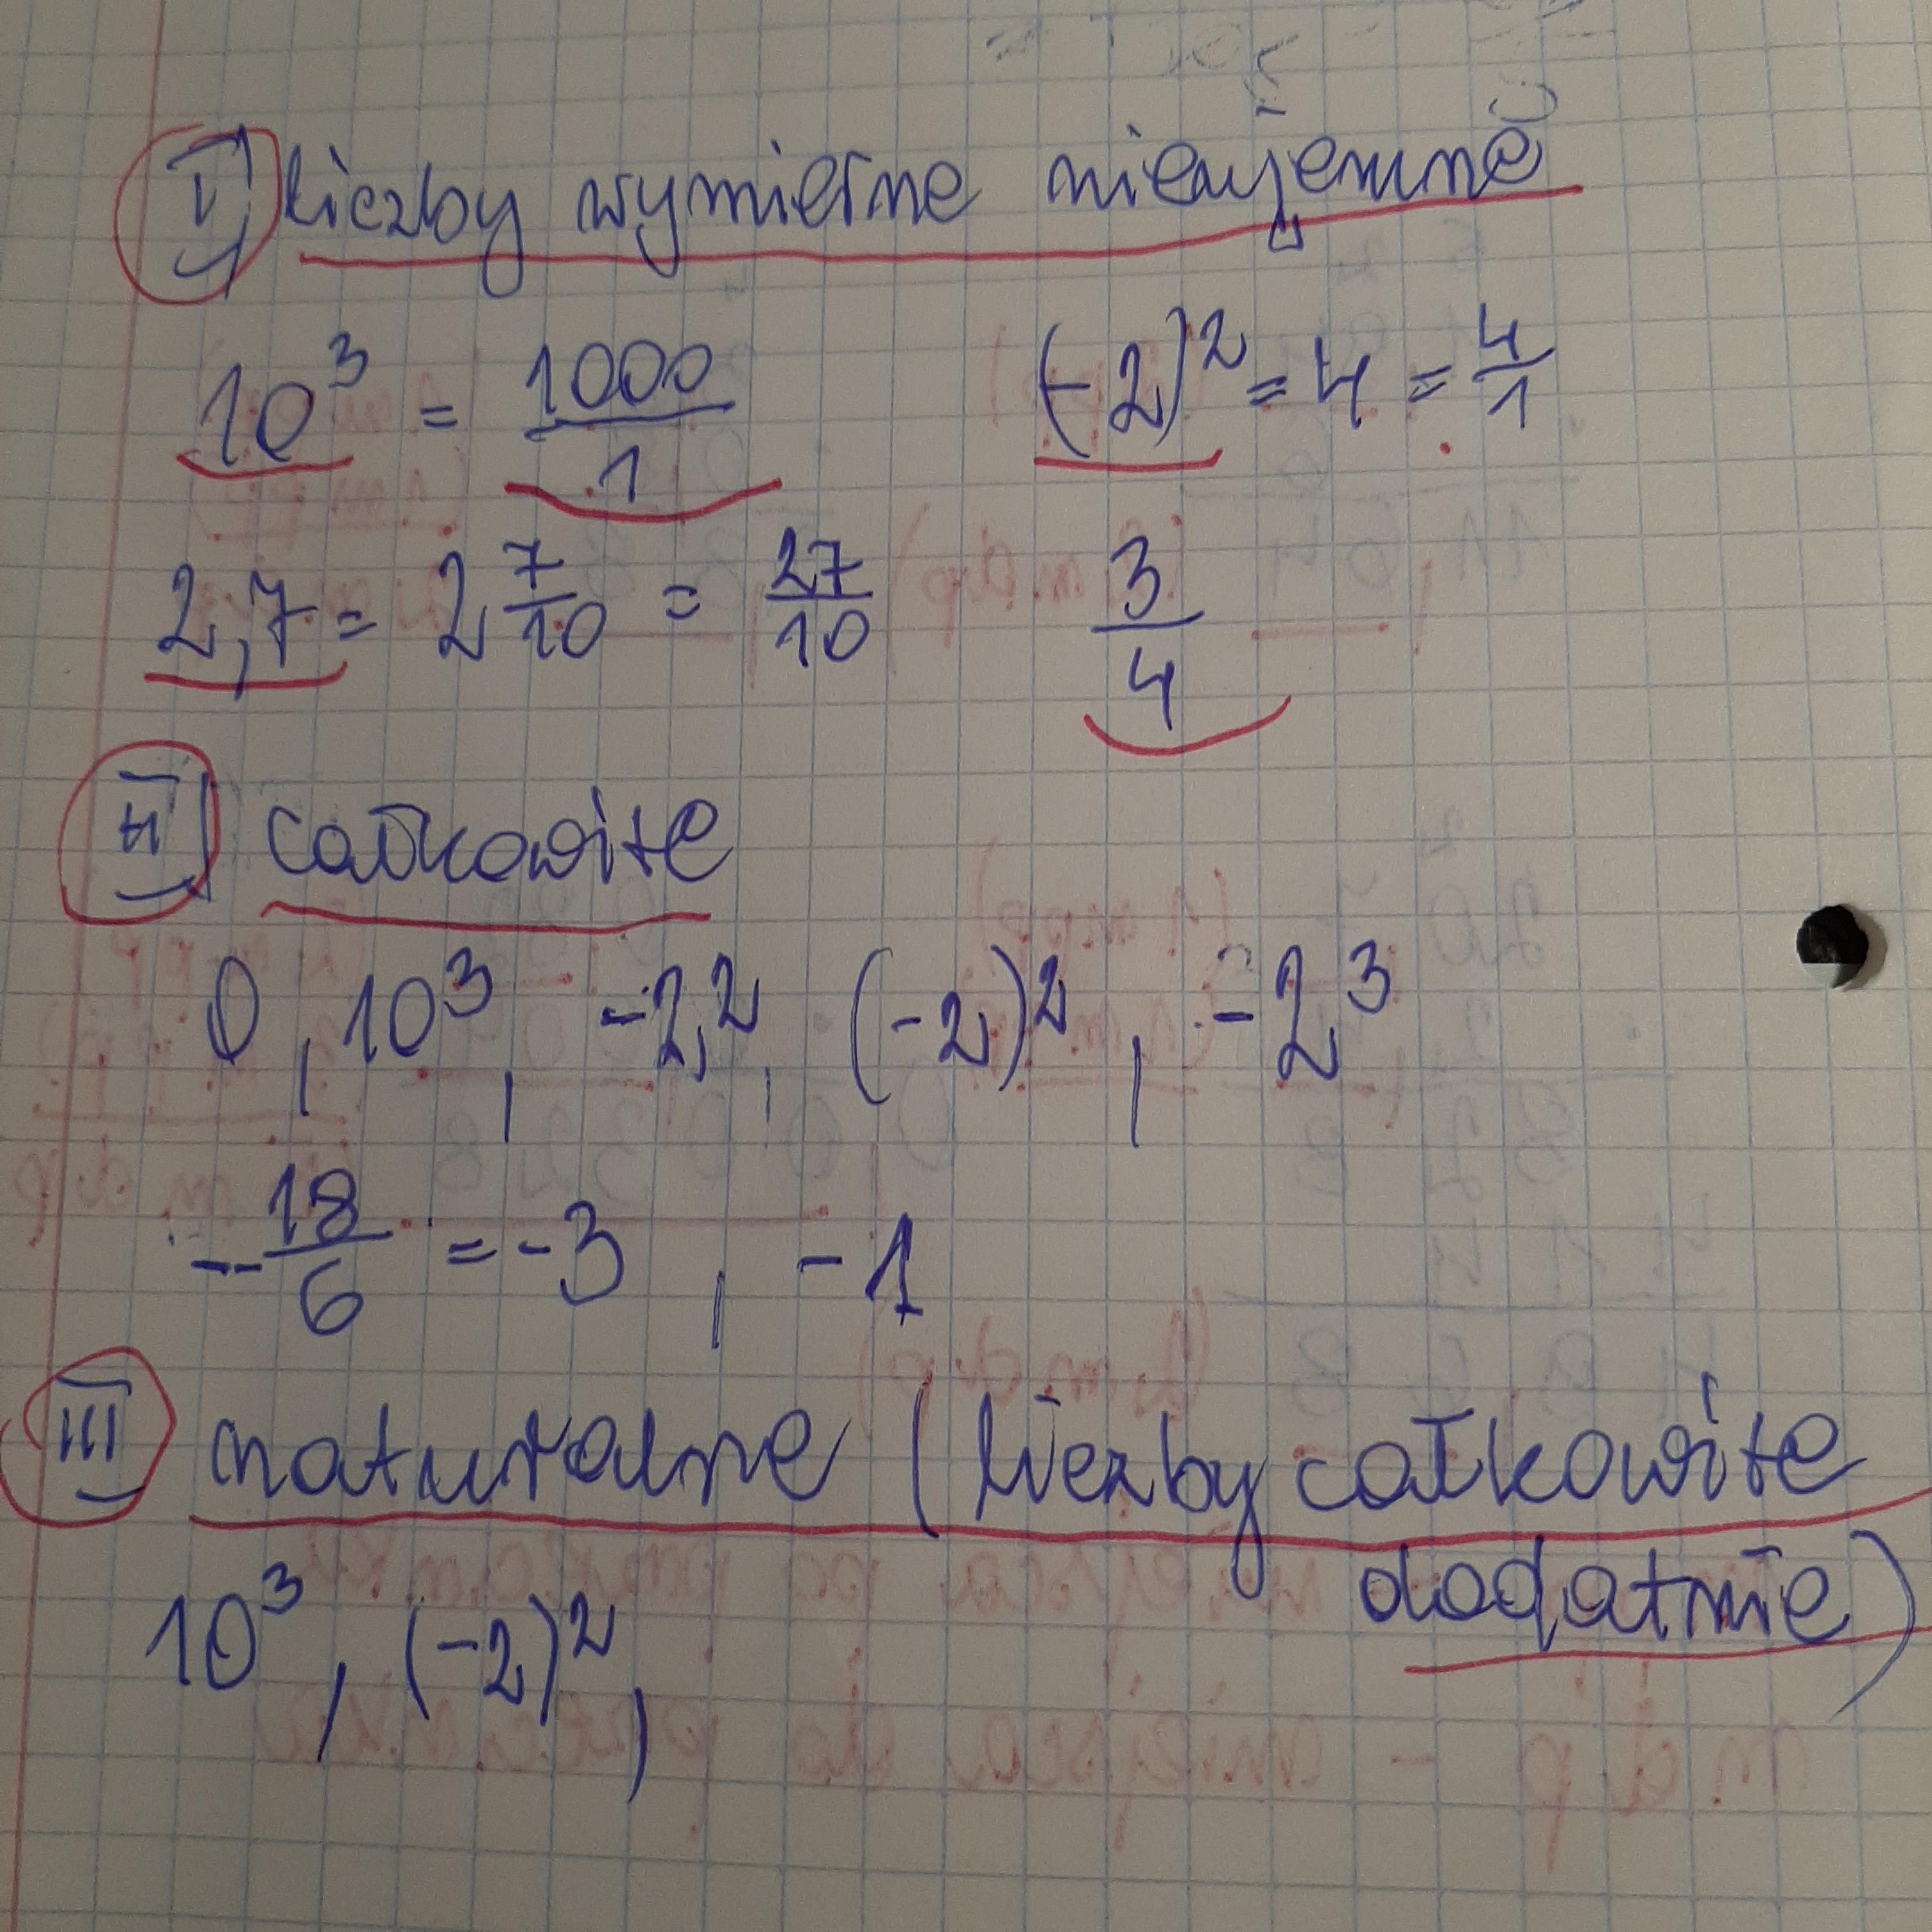 I) liczby wymierne nieujemne
10³ = 1000/1 (-2)² = 4 = 4/1
2,7 = 2 7/10 = 27/10 3/4
II) całkowite
0, 10³, -2², (-2)², -2³
-18/6 = -3, -1
III naturalne (liczby całkowite
dodatnie)
10³, (-2)²,